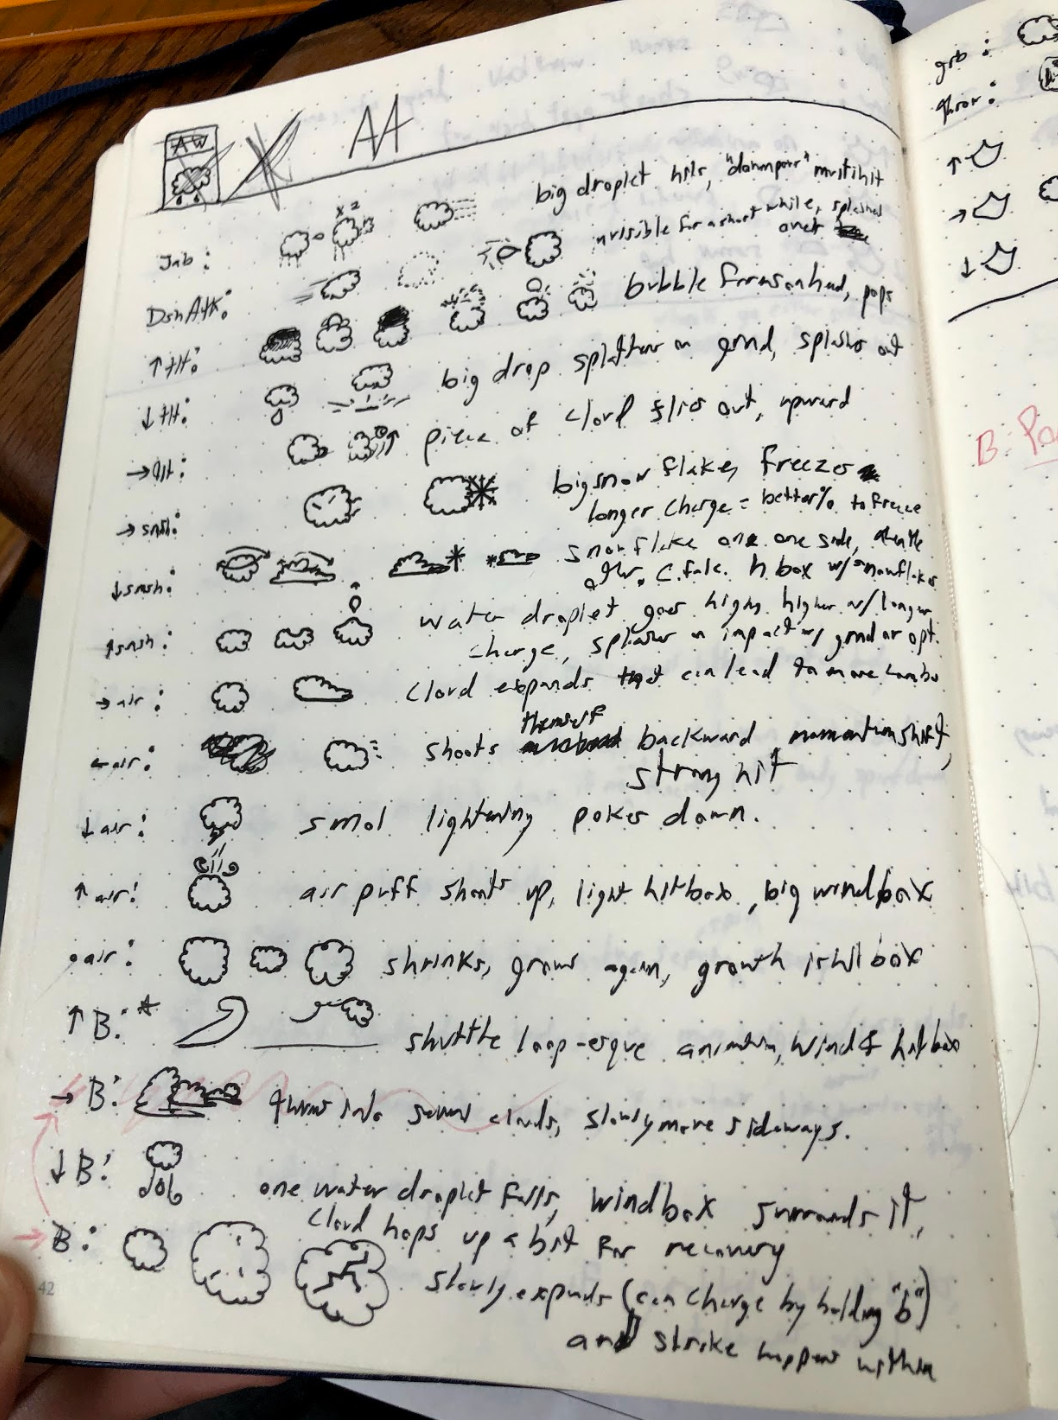 AW
AA
x2
Jab: big droplet hits, "downpour" multihit
Dsh Atk: invisible for a short while, splashes
over
↑tlt: bubble forms on head, pops
↓tlt: big drop splatters on grnd, splashes out
→tlt: piece of cloud flies out, upward
→smsh: big snow flake, freezes
longer charge = better % to freeze
↓smsh: snowflake one one side, then the
othr. C. falc. h.box w/ snowflakes
↑smsh: water droplet goes high, higher w/ longer
charge, splashes on impact w/ grnd or opt.
→air: cloud expands that can lead to more combo
←air: shoots themself backward momentum shift,
strong hit
↓air: smol lightening pokes down.
↑air: air puff shoots up, light hitbox, big windbox
•air: shrinks, grows again, growth is h box
↑B:* shuttle loop-esque animation, wind & hitbox
→B: turns into several clouds, slowly move sideways.
↓B: one water droplet falls, windbox surrounds it,
cloud hops up a bit for recovery
B: slowly expands (can charge by holding "b")
and strike happens within
42
grb:
throw:
↑
→
↓
B: